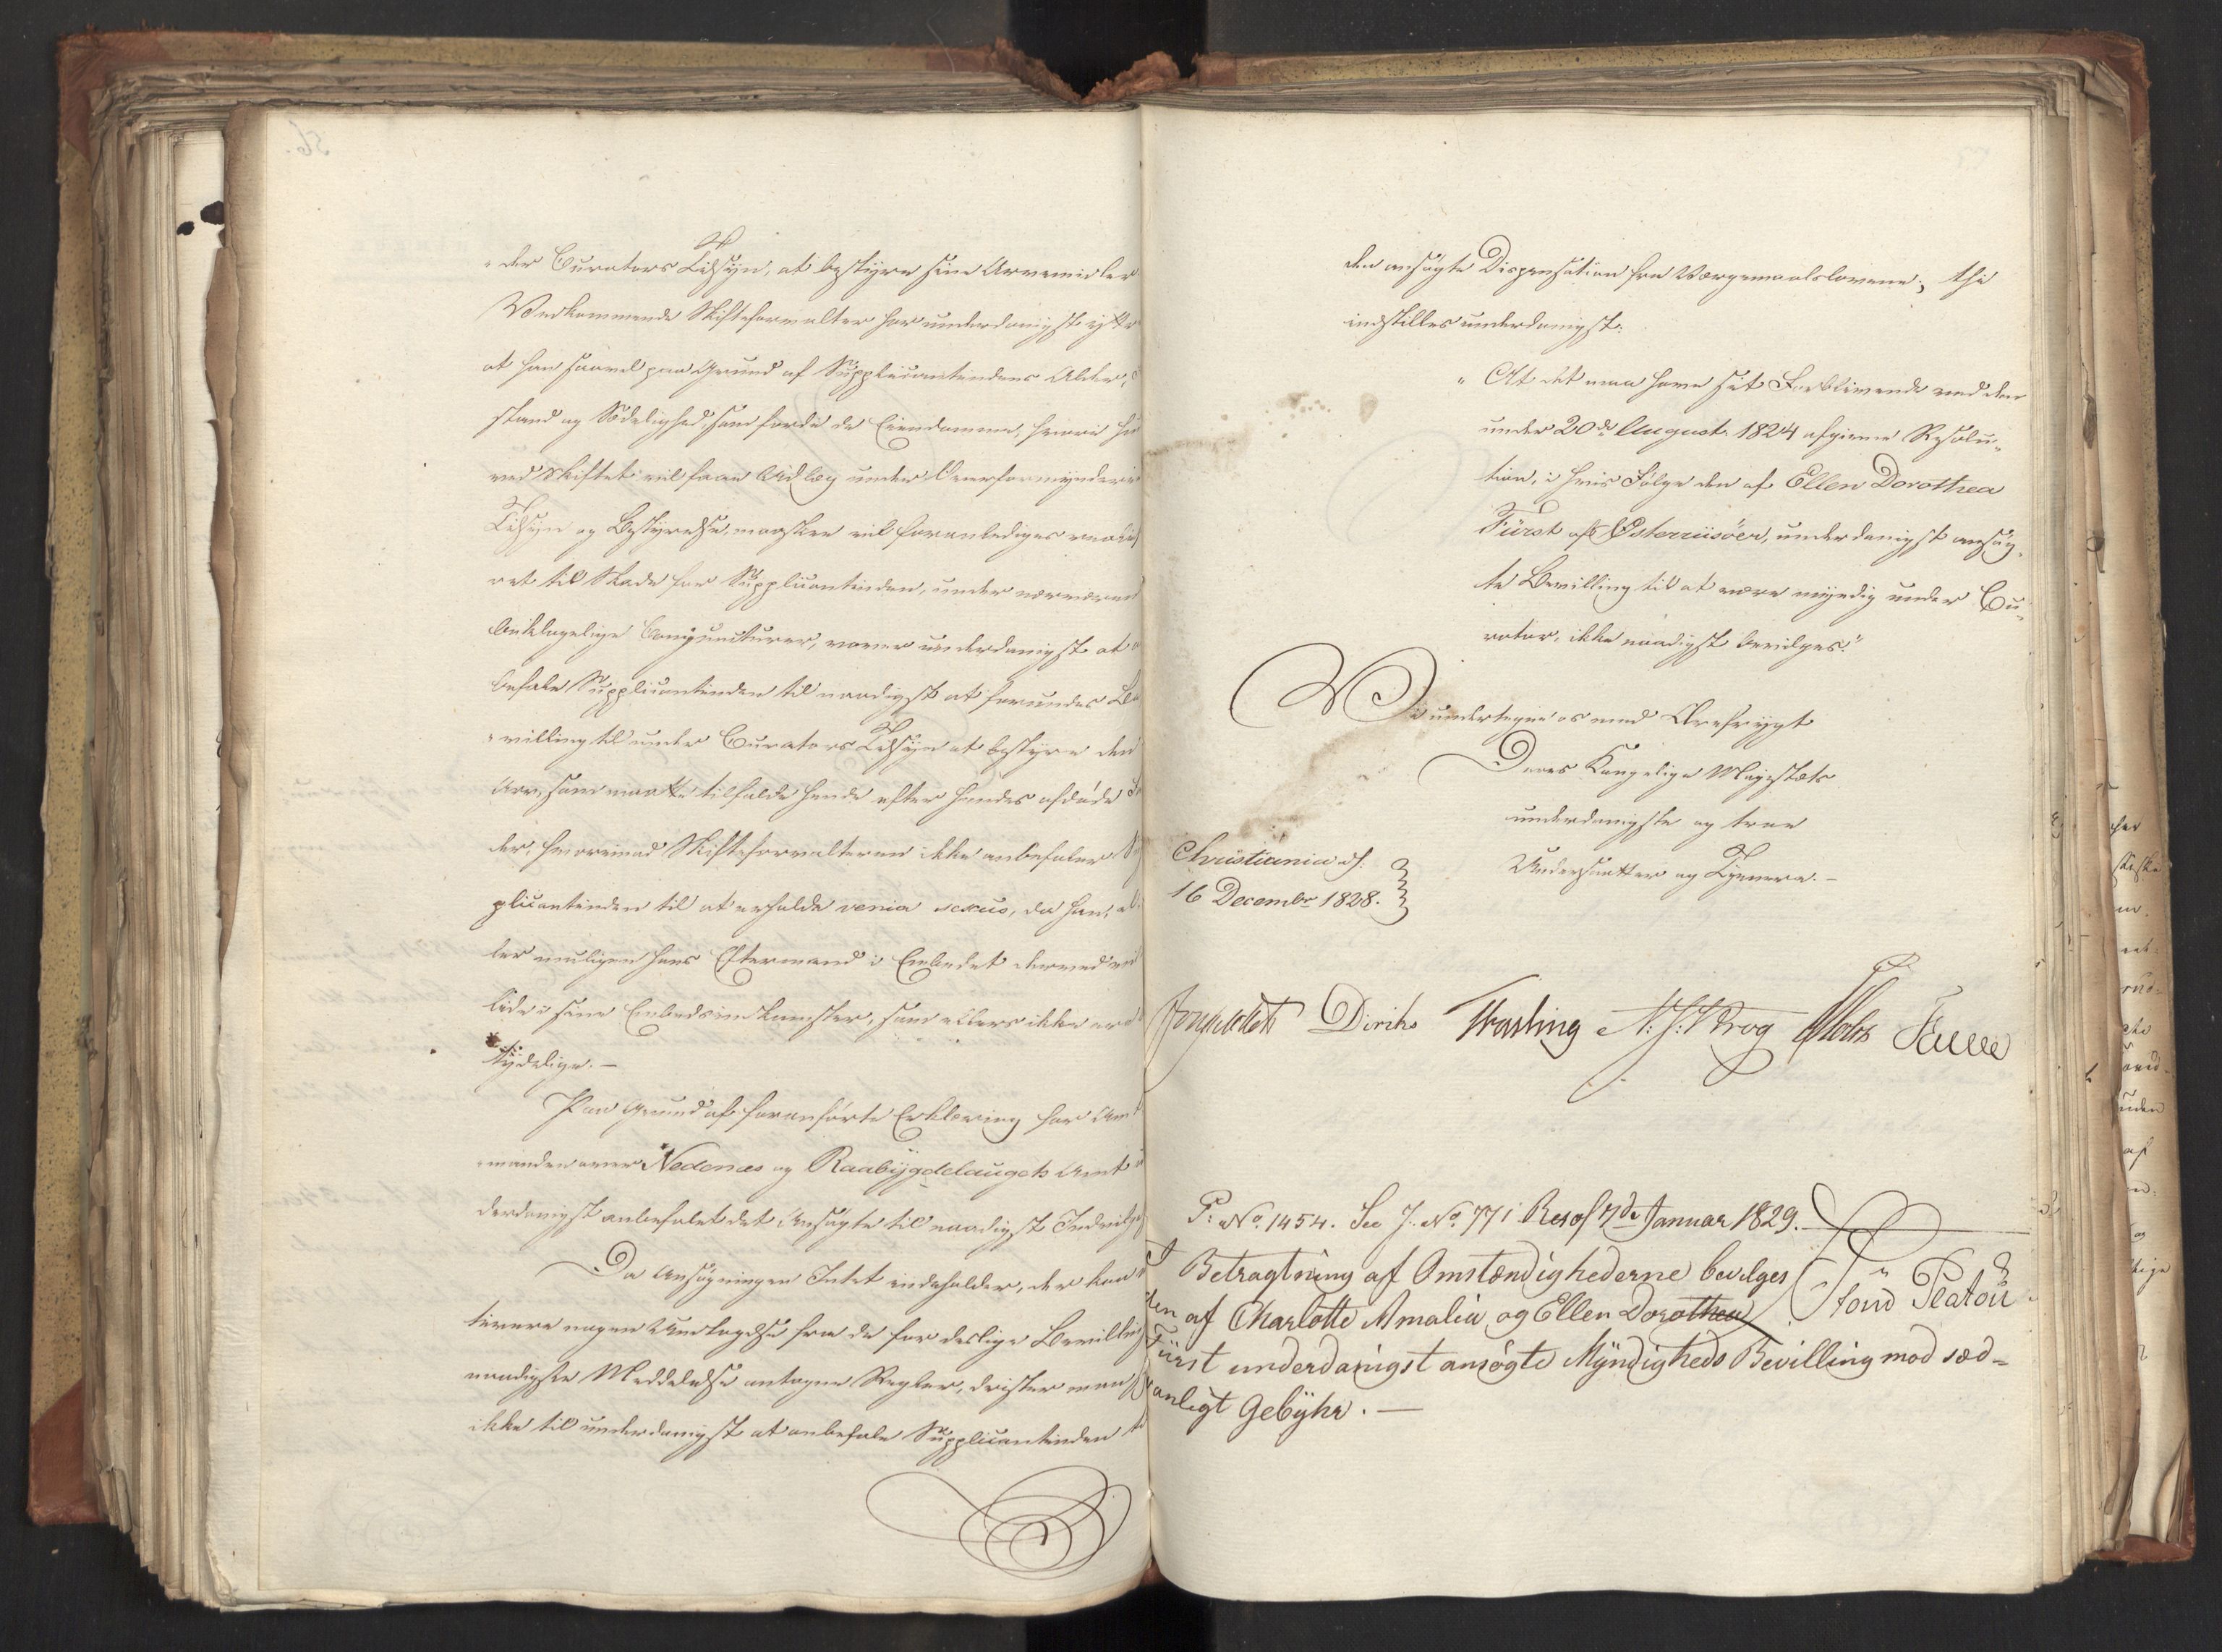 der Curators Tilsyn, at bestyre sine Arvemidler
Vedkommende Skifteforvalter har underdanigst yttr
at han saavel paa Grund af Supplicantindens Alder,
stand og Sædelighed, som fordi de Eiendomme, hvori hu
ved Skiftet vil faae Udlæg under Overformynderie
Tilsyn og Bestyrelse, maaskee vil foranlediges realis
ret til Skade for Supplicantinden, under nærværend
beklagelige Conjuncturer, vover underdanigst at
befale Supplicantinden til naadigst at forundes Be
villing til under Curators Tilsyn at bestyre den
Arv, som maatte tilfalde hende efter hendes afdøde
der, hvorimod Skifteforvalteren ikke anbefaler Su
plicantinden til at erholde venia sexus, da han, el
ler muligen hans Eftermand i Embedet derved vil
lide i sine Embedsindkomster, som ellers ikke ere
tydelige. —
Paa Grund af foranførte Erklæring har Amt
manden over Nedenæs og Raabÿgdelaugets Amt u
derdanigst anbefalet det Ansøgte til naadigst Indvilge
Da Ansøgningen Intet indeholder, der kan
tivere nogen Undtagelse fra de for deslige Bevilling
naadigste Meddelelse antagne Regler, drister man
ikke til underdanigst at anbefale Supplicantinden ti
den ansøgte Dispensation fra Værgemaalslovene; thi
indstilles underdanigst:
"At det maa have sit Forblivende ved den
under 20de August 1824 afgivne Resolu-
tion, i hvis Følge den af Ellen Dorothea
Fürst af Østerriisöer, underdanigst ansøg-
te Bevilling til at være myndig under Cu-
rator, ikke naadigst bevilges."
Vi undertegne os med Ærefrygt
Deres Kongelige Majestæts
underdanigste og troe
Undersaatter og Tjenere. —
Christiania d.
16 Decembr 1828.
Diriks Krog
P: No. 1454. See J. No. 771 Res. af 7de Januar 1829.
I Betragtning af Omstændighederne bevilges
den af Charlotte Amalia og Ellen Dorothea
Fürst underdanigst ansøgte Mÿndigheds Bevilling mod sæd-
vanligt Gebÿhr. —